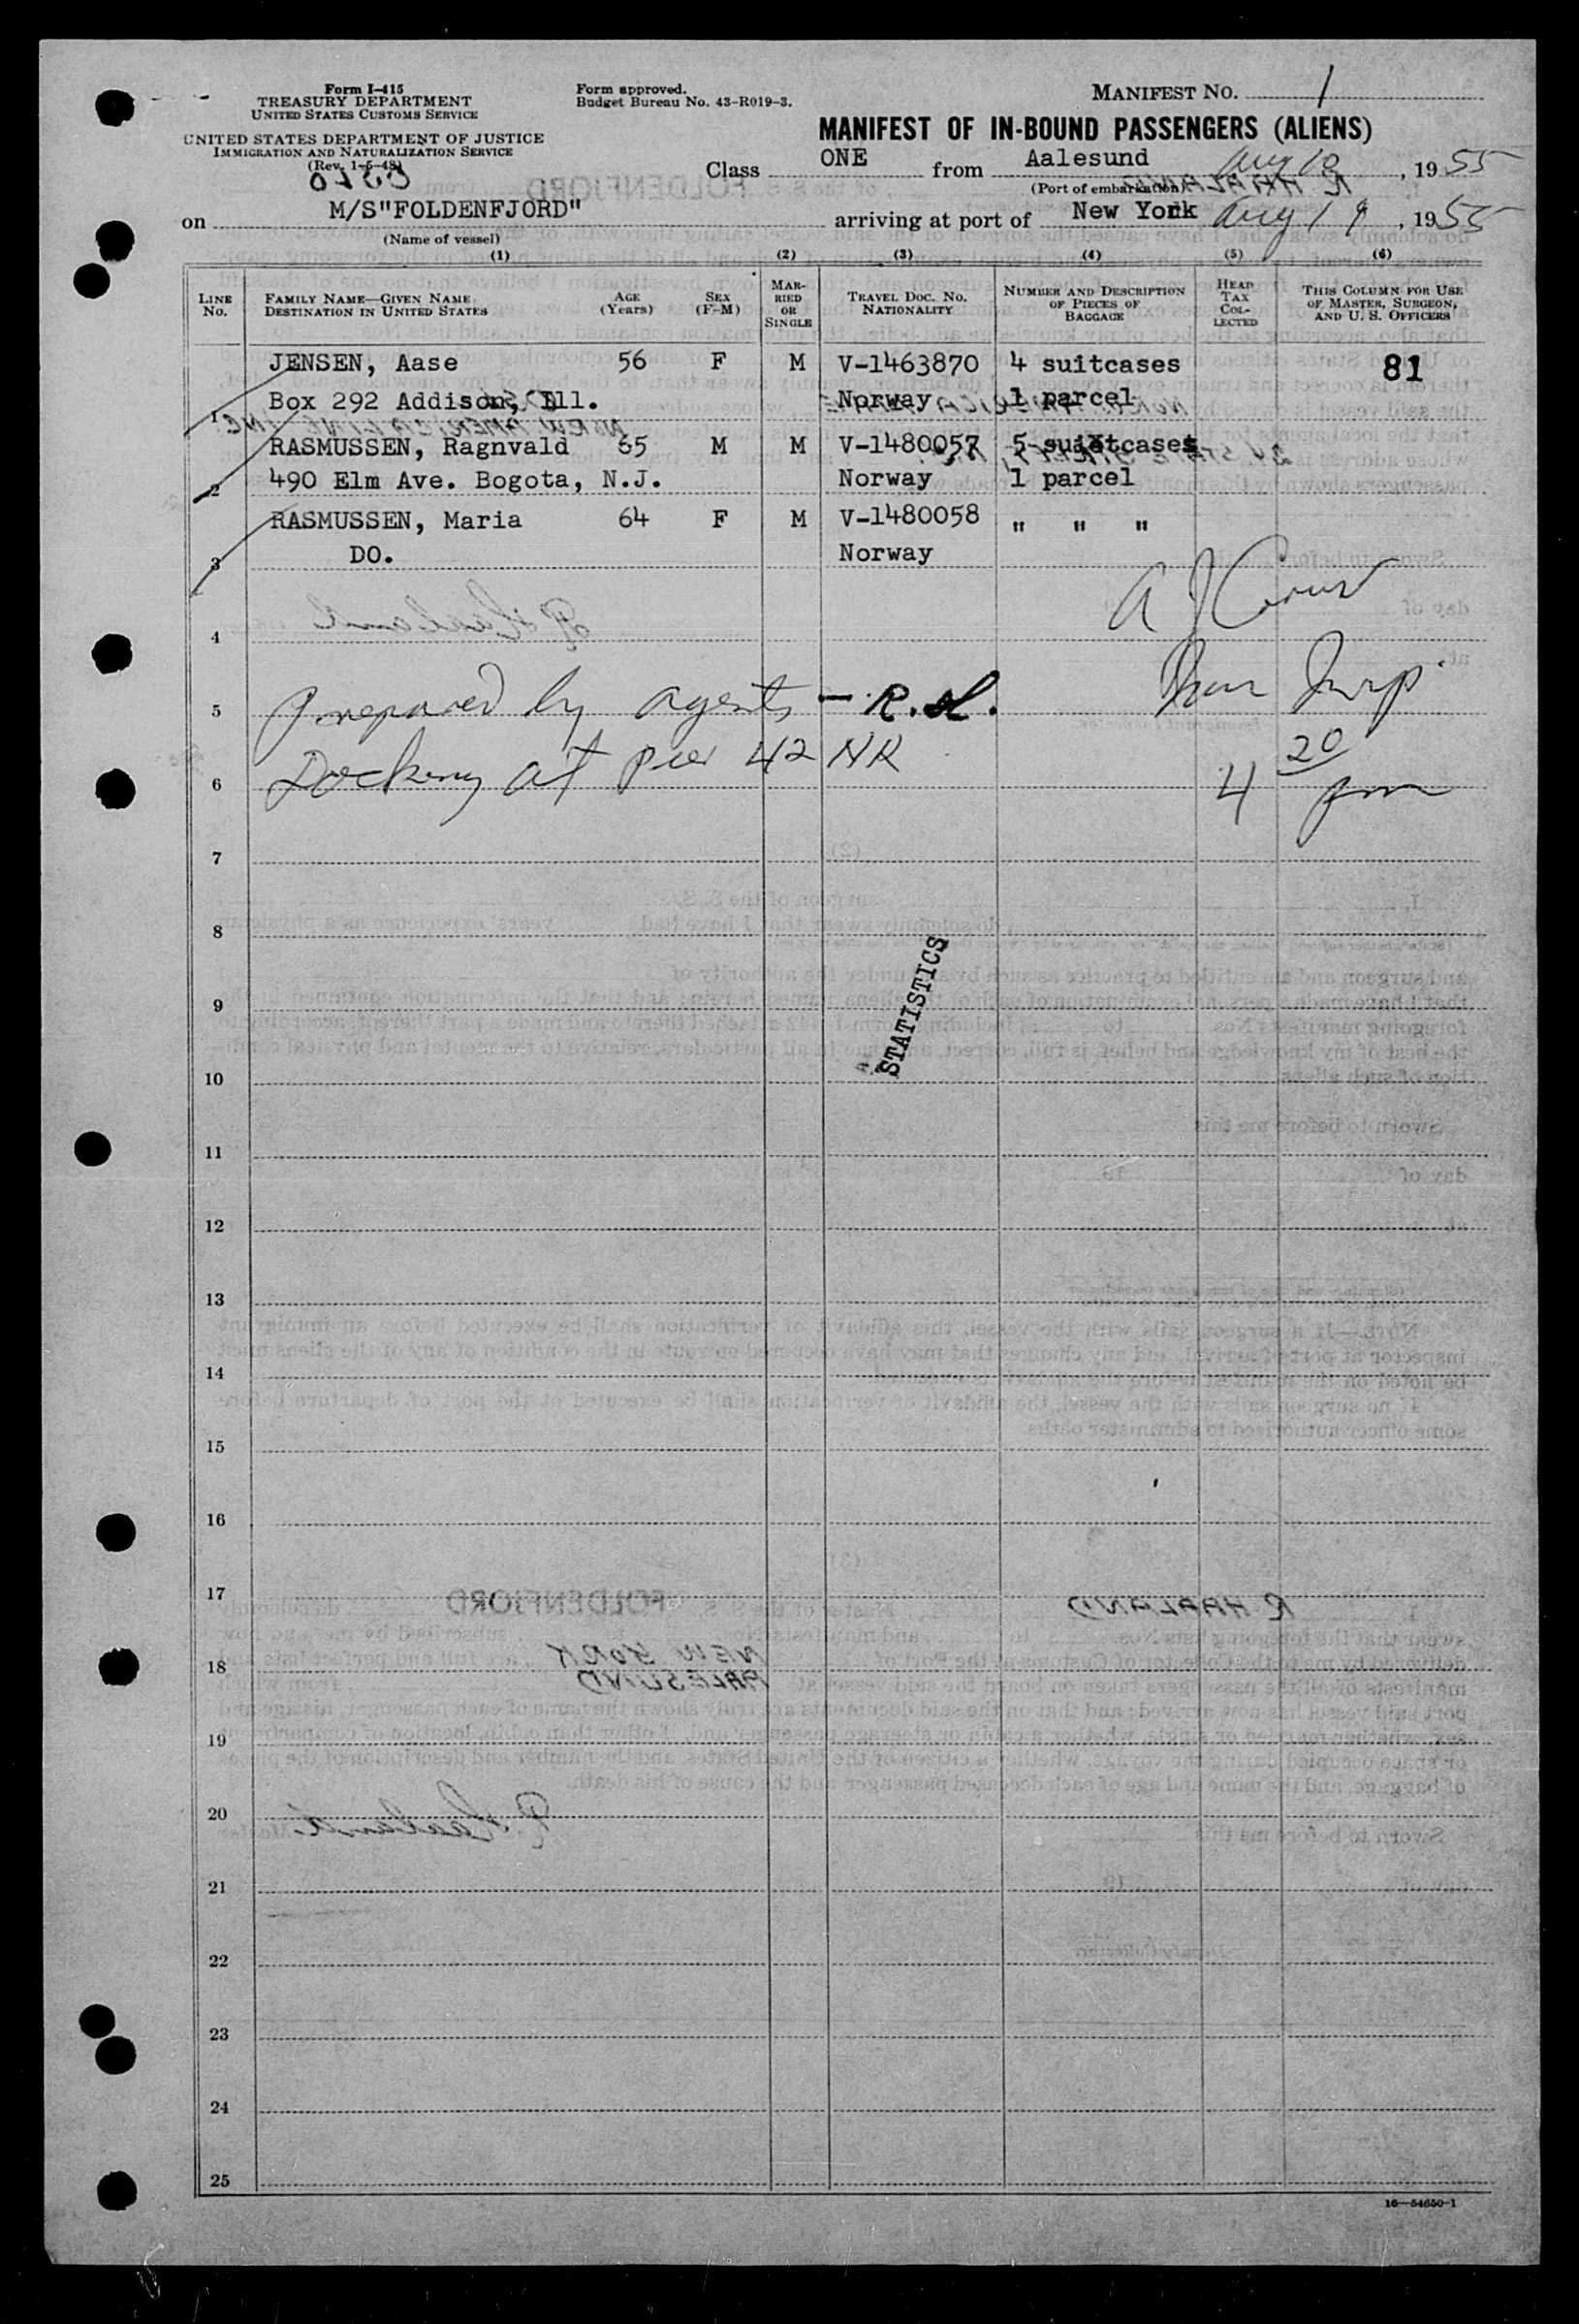 Form I-415
TREASURY DEPARTMENT
UNITED STATES CUSTOMS SERVICE
UNITED STATES DEPARTMENT OF JUSTICE
IMMIGRATION AND NATURALIZATION SERVICE
(Rev. 1-5-48)
Form approved.
Budget Bureau No. 43-R019-3.
MANIFEST NO. 1
MANIFEST OF IN-BOUND PASSENGERS (ALIENS)
Class ONE from Aalesund Aug 10, 1955
(Port of embarkation)
on M/S"FOLDENFJORD" arriving at port of New York Aug 19, 1955
(Name of vessel)
(1) (2) (3) (4) (5) (6)
LINE NO. FAMILY NAME—GIVEN NAME DESTINATION IN UNITED STATES AGE (Years) SEX (F-M) MARRIED OR SINGLE TRAVEL DOC. NO. NATIONALITY NUMBER AND DESCRIPTION OF PIECES OF BAGGAGE HEAD TAX COLLECTED THIS COLUMN FOR USE OF MASTER, SURGEON, AND U. S. OFFICERS
JENSEN, Aase 56 F M V-1463870 4 suitcases 81
1 Box 292 Addison, Ill. Norway 1 parcel
RASMUSSEN, Ragnvald 65 M M V-1480057 5 suitcases
2 490 Elm Ave. Bogota, N.J. Norway 1 parcel
RASMUSSEN, Maria 64 F M V-1480058 " " "
3 DO. Norway
4
5 Prepared by agents - R.H.
6 Docking at Pier 42 NR 4 20 pm
7
8
STATISTICS
9
10
11
12
13
14
15
16
17
18
19
20
21
22
23
24
25
16—54650-1